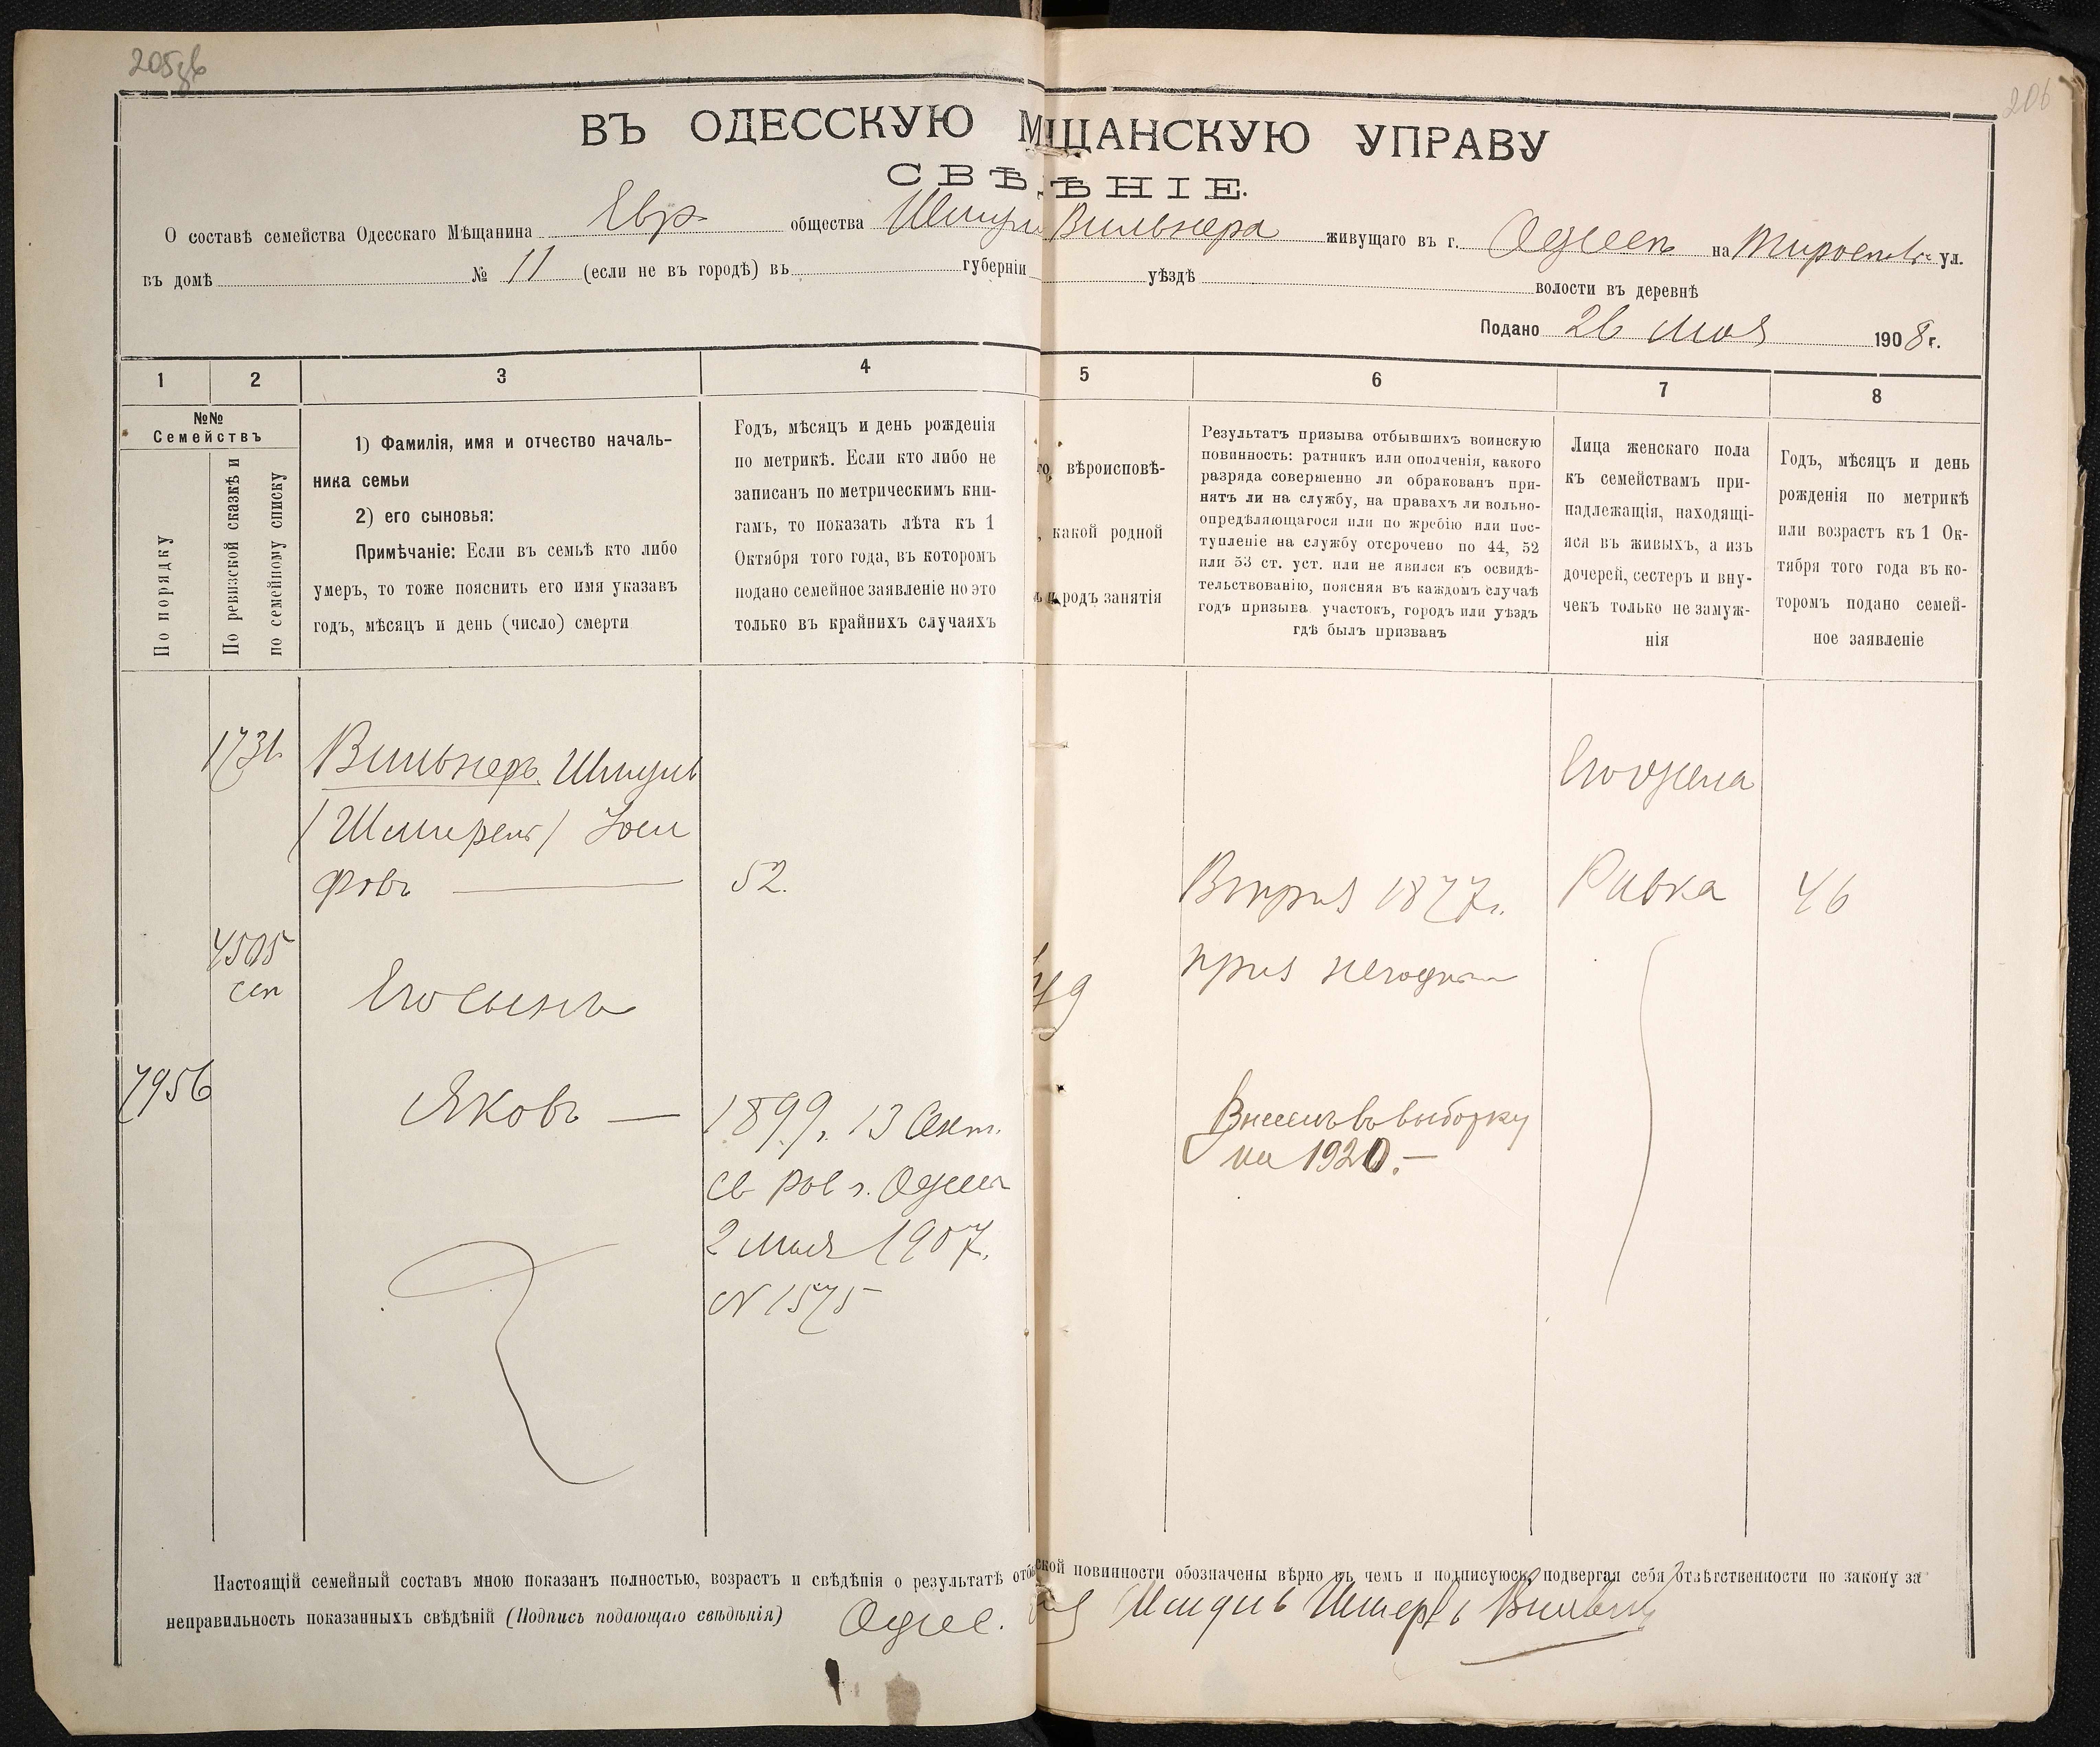 205об
206
ВЪ ОДЕССКУЮ МѢЩАНСКУЮ УПРАВУ
СВѢДѢНІЕ.
О составѣ семейства Одесскаго Мѣщанина Евр. общества Шмуля Вильнера живущаго въ г. Одессѣ на ул.
въ домѣ № 11 (если не въ городѣ) въ губерніи уѣздѣ волости въ деревнѣ
Подано 26 мая 1908 г.
1 2 3 4 5 6 7 8
№№
Семействъ
По порядку
По ревизской сказкѣ и
по семейному списку
1) Фамилія, имя и отчество началь-
ника семьи
2) его сыновья:
Примѣчаніе: Если въ семьѣ кто либо
умеръ, то тоже пояснить его имя указавъ
годъ, мѣсяцъ и день (число) смерти
Годъ, мѣсяцъ и день рожденія
по метрикѣ. Если кто либо не
записанъ по метрическимъ кни-
гамъ, то показать лѣта къ 1
Октября того года, въ которомъ
подано семейное заявленіе но это
только въ крайнихъ случаяхъ
го вѣроисповѣ-
, какой родной
и родъ занятія
Результатъ призыва отбывшихъ воинскую
повинность: ратникъ или ополченія, какого
разряда совершенно ли обракованъ при-
нятъ ли на службу, на правахъ ли вольно-
опредѣляющагося или по жребію или пос-
тупленіе на службу отсрочено по 44, 52
или 53 ст. уст. или не явился къ освидѣ-
тельствованію, поясняя въ каждомъ случаѣ
годъ призыва участокъ, городъ или уѣздъ
гдѣ былъ призванъ
Лица женскаго пола
къ семействамъ при-
надлежащія, находящі-
яся въ живыхъ, а изъ
дочерей, сестеръ и вну-
чекъ только не замуж-
нія
Годъ, мѣсяцъ и день
рожденія по метрикѣ
или возрастъ къ 1 Ок-
тября того года въ ко-
торомъ подано семей-
ное заявленіе
Вильнеръ Шмуль
Іоси
фовъ — 52.
4505
сем
Его сынъ
7956
Яковъ — 1899 г. 13 Сент.
св рав г. Одессы
2 мая 1907.
№ 1575
Въ приз 1877 г.
приз негодным
Внесенъ въ выборку
на 1920. —
Его жена
Ривка 46
Настоящій семейный составъ мною показанъ полностью, возрастъ и свѣдѣнія о результатѣ отб ской повинности обозначены вѣрно въ чемъ и подписуюсь, подвергая себя отвѣтственности по закону за
неправильность показанныхъ свѣдѣній (Подпись подающаго свѣдѣнія) Одес.